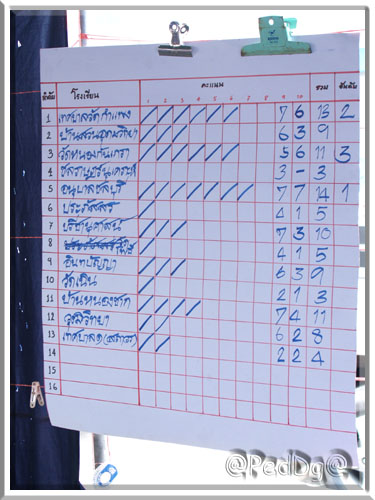 ลำดับ โรงเรียน คะแนน รวม อันดับ
1 2 3 4 5 6 7 8 9 10
1 เทศบาลวัดกำแพง 7 6 13 2
2 บ้านสวนอุดมวิทยา 6 3 9
3 วัดหนองกันเกรา 5 6 11 3
4 ชลราษฎรนุเคราะห์ 3 - 3
5 อนุบาลชลบุรี 7 7 14 1
6 ประภัสสร 4 1 5
7 ปรีชานุศาสน์ 7 3 10
8 4 1 5
9 อินทปัญญา 6 3 9
10 วัดเนิน 2 1 3
11 บ้านหนองชาก 7 4 11
12 วุฒิวิทยา 6 2 8
13 เทศบาล 2 2 4
14
15
16
@PedDg@